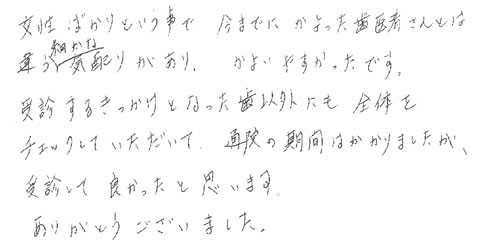 女性ばかりという事で 今までに かよった歯医者さんとは
違う細かな気配りがあり、 かよいやすかったです。
受診するきっかけとなった歯以外にも 全体を
チェックしていただいて、通院の期間はかかりましたが、
受診して 良かったと 思います。
ありがとうございました。